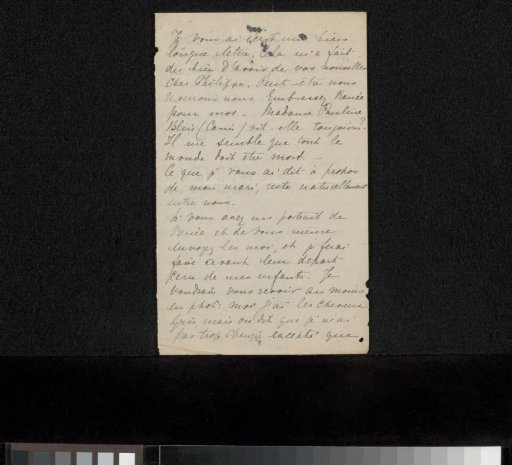 Je vous ai écrit une bien
longue lettre, Cela m'a fait
du bien d'avoir de vos nouvelles
Cher Philippe. Peut-être nous
nous. Embrassez
pour moi. Madame Pauline
vit-elle toujours?
Il me semble que tout le
monde doit être mort. —
Ce que je vous ai dit à propos
de mon mari, reste naturellement
entre nous.
Si vous avez un portrait de
et de vous même
envoyez les moi, et je ferai
faire avant leur départ
ceux de mes enfants. Je
voudrais vous revoir au moins
en phot: moi j'ai les cheveux
gris, mais on dit que je n'ai
pas trop changé excepté que